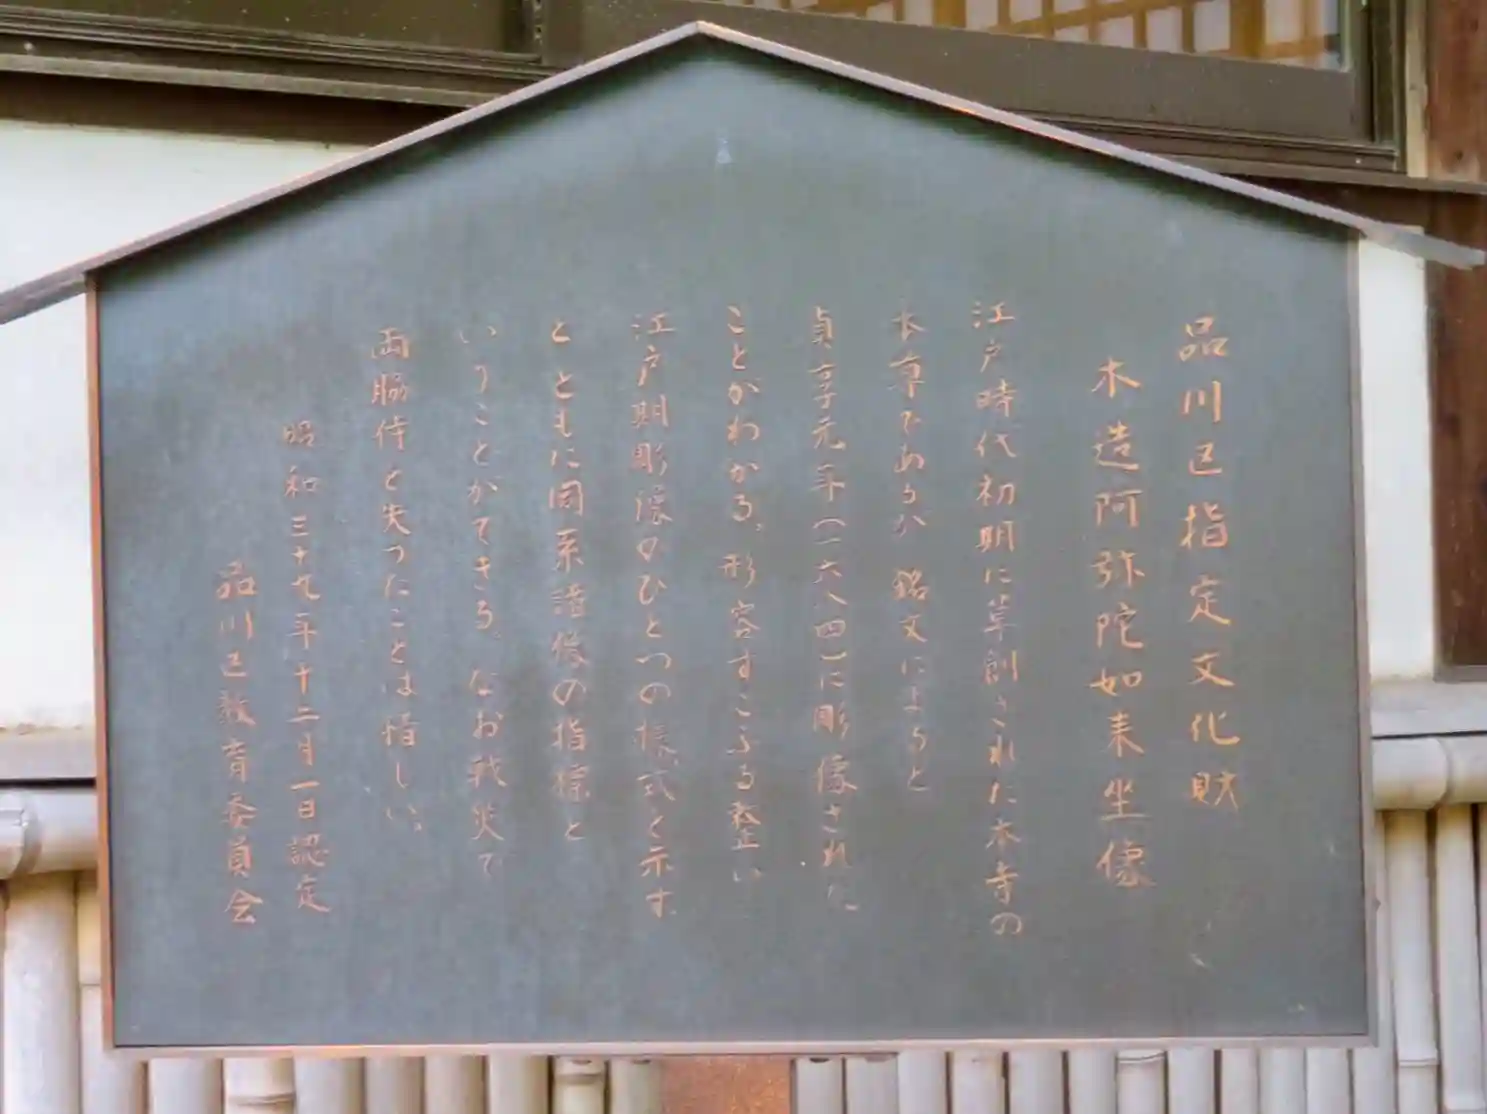 品川区指定文化財
木造阿弥陀如来坐像
江戸時代初期に草創された本寺の
本尊であるが 銘文によると
貞享元年(一六八四)に彫像された
ことがわかる。形容すこぶる整い
江戸期彫像のひとつの様式を示す
とともに同系諸像の指標と
いうことができる。なお戦災で
両脇侍を失ったことは惜しい。
昭和三十九年十二月一日認定
品川区教育委員会